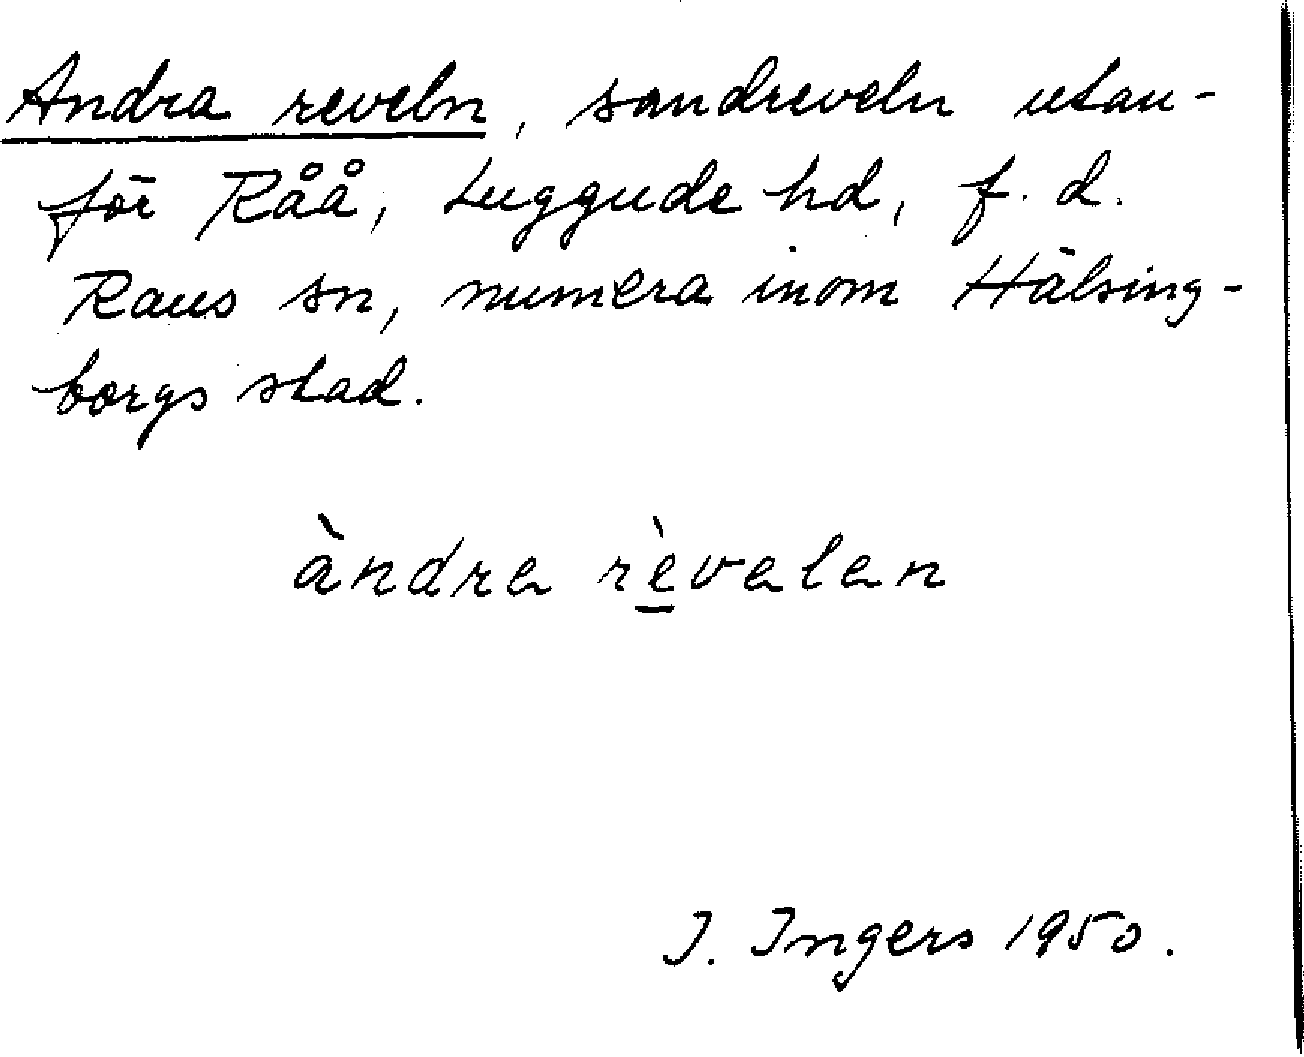 Andra reveln, sandreveln utan-
för Råå, Luggude hd, f. d.
Raus sn, numera inom Hälsing-
borgs stad.
àndra rèvalan
I. Ingers 1950.